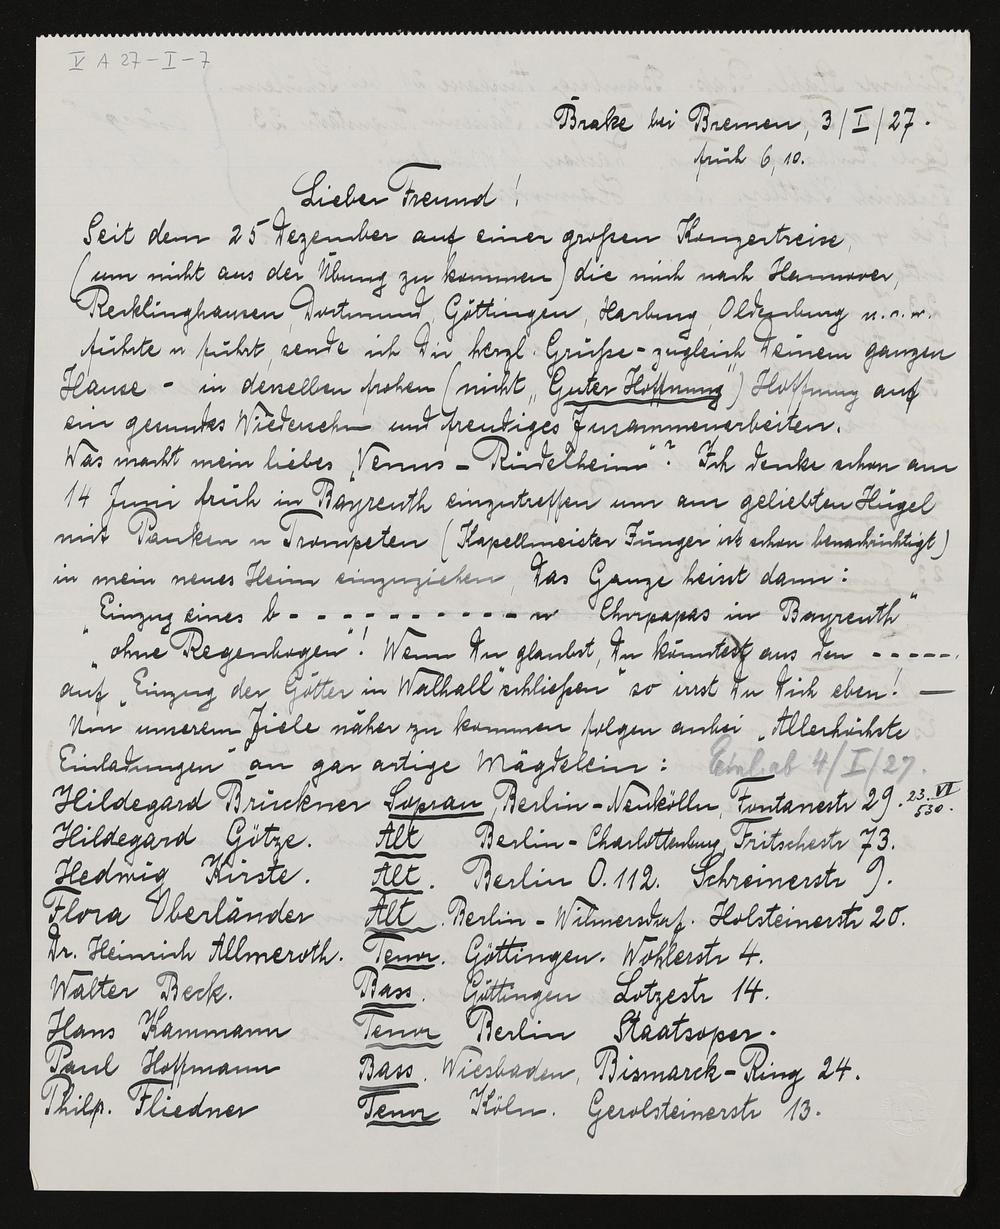 V A 27-I-7
Brake bei Bremen, 3/I/27.
früh 6,10.
Lieber Freund!
Seit dem 25 Dezember auf einer großen Konzertreise,
(um nicht aus der Übung zu kommen) die mich nach Hannover,
Recklinghausen, Dortmund, Göttingen, Harburg, Oldenburg u.s.w.
führte u führt, sende ich Dir herzl. Grüße - zugleich Deinem ganzen
Hause - in derselben frohen (nicht „Guter Hoffnung") Hoffnung auf
ein gesundes Wiedersehn und freudiges Zusammenarbeiten.
Was macht mein liebes „Venus - Rüdelheim"? Ich denke schon am
14 Juni früh in Bayreuth einzutreffen um am geliebten Hügel
mit Pauken u Trompeten (Kapellmeister Zünger ist schon benachrichtigt)
in mein neues Heim einzuziehen, das Ganze heisst dann:
„Einzug eines b - - - - - - - - - - - n Chorpapas in Bayreuth"
„ohne Regenbogen"! Wenn Du glaubst, Du könntest aus den - - - - -
auf „Einzug der Götter in Walhall" schließen" so irrst Du Dich eben! —
Um unserem Ziele näher zu kommen folgen anbei „Allerhöchste
Einladungen" an gar artige Mägdelein: Einl. ab 4/I/27.
Hildegard Brückner Sopran, Berlin-Neukölln, Fontanestr 29. 23. VI 530.
Hildegard Götze. Alt Berlin-Charlottenburg, Fritschestr 73.
Hedwig Kirste. Alt. Berlin O.112. Schreinerstr 9.
Flora Oberländer Alt. Berlin-Wilmersdorf. Holsteinerstr 20.
Dr. Heinrich Allmeroth. Tenor. Göttingen. Wöhlerstr 4.
Walter Beck. Bass. Göttingen Lotzestr 14.
Hans Kammann Tenor Berlin Staatsoper.
Paul Hoffmann Bass. Wiesbaden, Bismarck-Ring 24.
Philp. Fliedner Tenor Köln. Gerolsteinerstr 13.